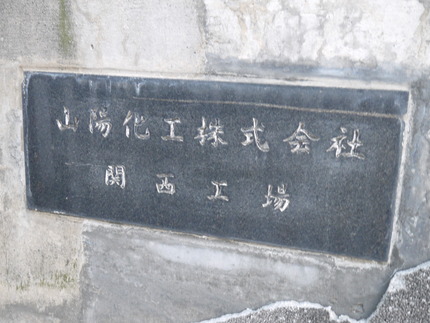 山陽化工株式会社
関西工場